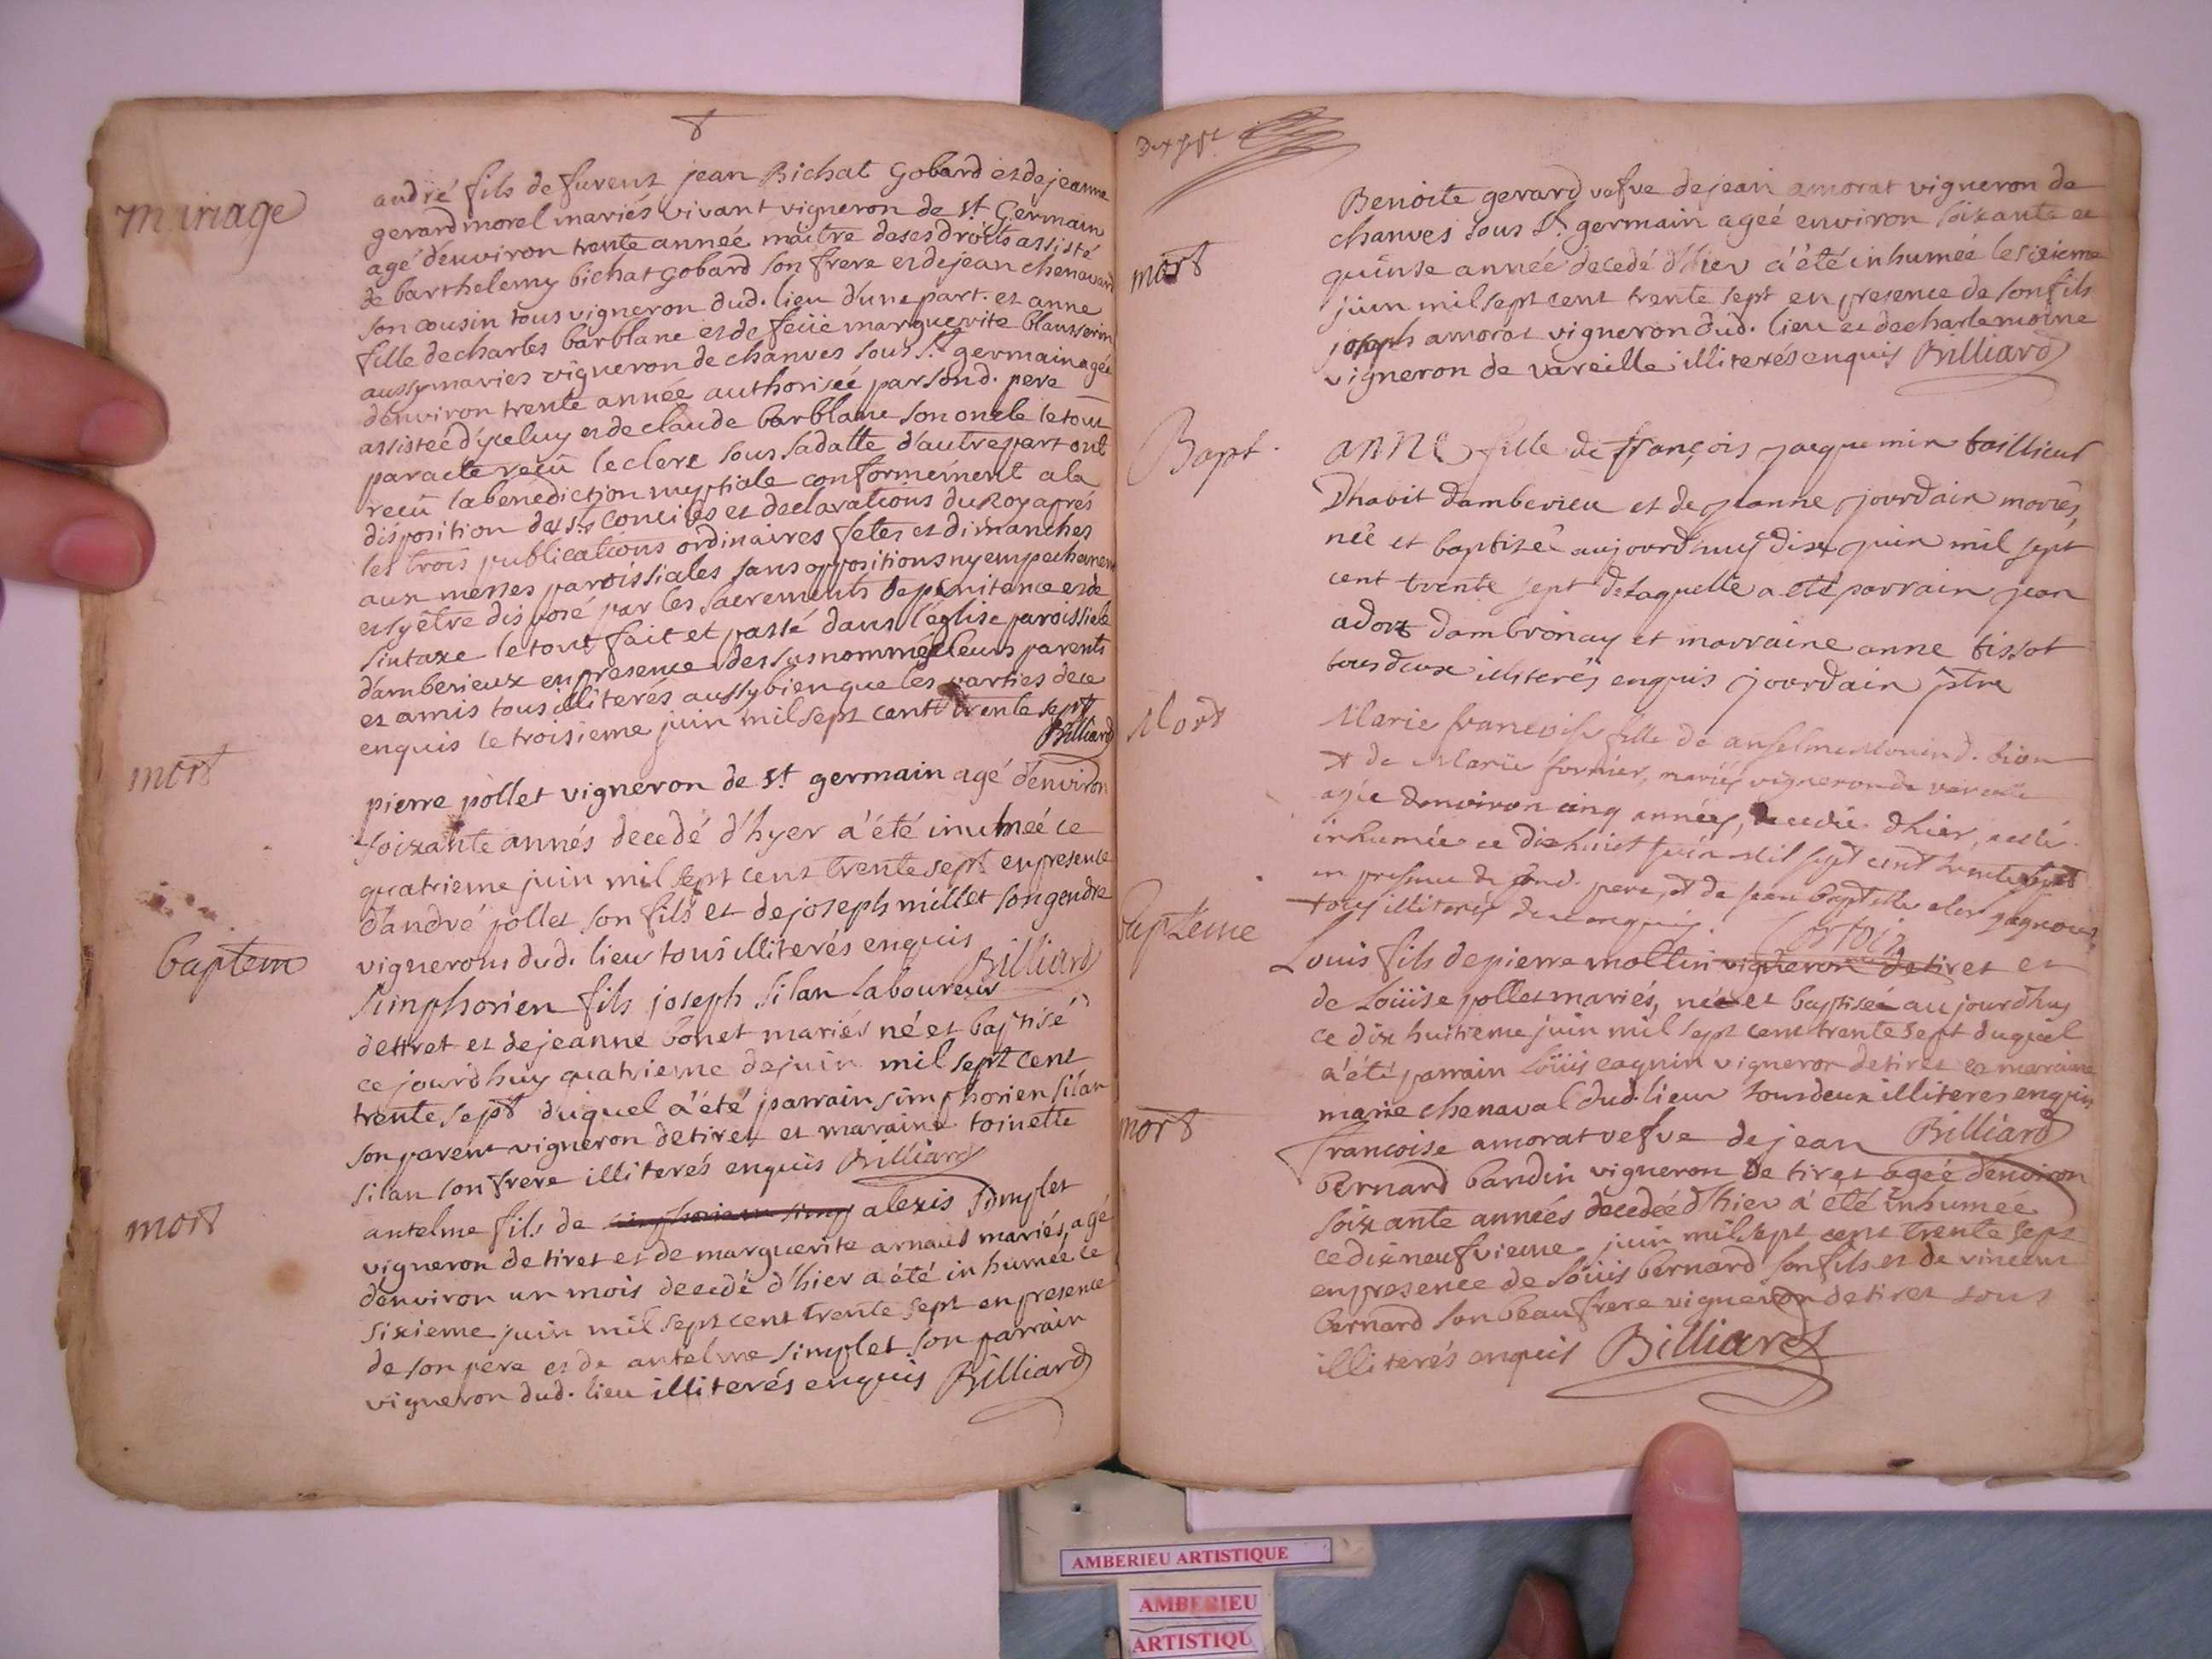 mariage
andré fils de furent jean Bichat Gobard et de jeanne
gerard morel mariés vivant vigneron de St. Germain
agé d'environ trente année maitre de ses droits assisté
de barthelemy bichat Gobard son frere et de jean chenavard
son cousin tous vigneron dud. lieu d'une part. et anne
fille de charles barblane et de feüe marguerite
aussy mariés vigneron de chanves sous St. germain agée
d'environ trente année authorisée par sond. pere
assistée d'yceluy et de claude barblane son oncle le tout
par acte reçû leclerc sous sadatte d'autre part ont
reçû la benediction nuptiale conformement a la
disposition des sts conciles et declarations du Roy aprés
les trois publications ordinaires fetes et dimanches
aux messes paroissiales sans oppositions ny empechement
et s'y être disposé par les sacrements de penitence et de
le tout fait et passé dans l'église paroissiale
d'amberieux en presence des susnommés leurs parents
et amis tous illiterés aussy bien que les parties de ce
enquis le troisieme juin mil sept cent trente sept
Billiard
mort
pierre pollet vigneron de St germain agé d'environ
soixante annés decedé d'hyer a'été inumeé ce
quatrieme juin mil sept cent trente sept en presence
d'andré pollet son fils et de joseph millet son gendre
vignerons dud. lieu tous illiterés enquis
Billiard
baptem
simphorien fils joseph silan laboureur
detiret et de jeanne bonet mariés né et baptisé
ce jourd'huy quatrieme de juin mil sept cent
trente sept duquel a'été parrain simphorien silan
son parent vigneron de tiret et maraine toinette
silan son frere illiterés enquis Billiard
mort
antelme fils de alexis simplet
vigneron de tiret et de marguerite arnaud mariés, agé
d'environ un mois decedé d'hier a été inhumée ce
sixieme juin mil sept cent trente sept en presence
de son pere et de antelme simplet son parrain
vigneron dud. lieu illiterés enquis Billiard
Dix sept
mort
Benoite gerard vefve de jean amorat vigneron de
chanves sous St. germain ageé environ soixante et
quinse année decedé d'hier a'été inhumée le sixieme
juin mil sept cent trente sept en presence de son fils
joseph amorat vigneron dud. lieu et de charle moine
vigneron de vareille illiterés enquis Billiard
Bapt.
anne fille de françois jacquemin taillieur
D'habit damberieu et de jeanne jourdain mariés,
née et baptizée aujourd'huy dix juin mil sept
cent trente sept de laquelle a eté parrain jean
dambronay et marraine anne tissot
tous deux illiterés enquis jourdain ptre
Mort
Marie francoise fille de anselme
et de Marie fornier, mariés vigneron de vareille
agée denviron cinq années, decedée dhier, a esté
inhumée ce dixhuict juin mil sept cent trente sept
en presence de sond. pere, et de jean baptiste
tous illiterés de ce enquis.
baptéme
Louis fils de pierre mollin vigneron de tiret et
de Loüise pollet mariés, née et baptisée aujourdhuy
ce dix huitieme juin mil sept cent trente sept duquel
a'été parrain Loüis cagnin vigneron de tiret et maraine
marie chenaval dud. lieu tous deux illiteres enquis
Billiard
mort
francoise amorat vefve de jean
bernard bandin vigneron de tiret ageé d'environ
soixante annés decedeé d'hier a' été inhumeé
ce dix neufvieme juin mil sept cent trente sept
en presence de Loüis bernard son fils et de vincent
bernard son beaufrere vigneron de tiret tous
illiterés enquis Billiard
AMBERIEU ARTISTIQUE
AMBERIEU
ARTISTIQU